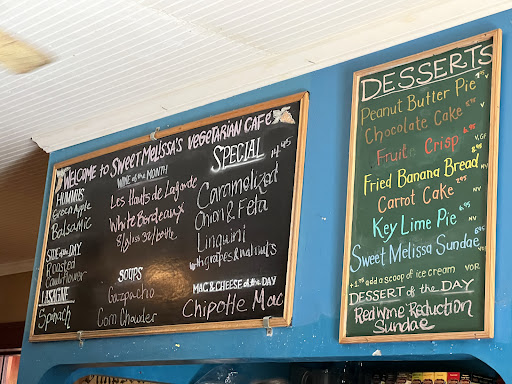 WELCOME to SWEET MELISSA'S VEGETARIAN CAFE
HUMMUS
Green Apple
Balsamic
SIDE of the DAY
Roasted
Cauliflower
LASAGNE
Spinach
WINE of the MONTH
Les Hauts de Lagarde
White Bordeaux
8/glass 32/bottle
SOUPS
Gazpacho
Corn Chowder
SPECIAL
14.95
Caramelized
Onion & Feta
Linguini
with grapes & walnuts
MAC & CHEESE of the DAY
Chipotle Mac
DESSERTS
Peanut Butter Pie
Chocolate Cake
Fruit Crisp
Fried Banana Bread
Carrot Cake
Key Lime Pie
Sweet Melissa Sundae
add a scoop of ice cream VOR
DESSERT of the DAY
Red Wine Reduction
Sundae